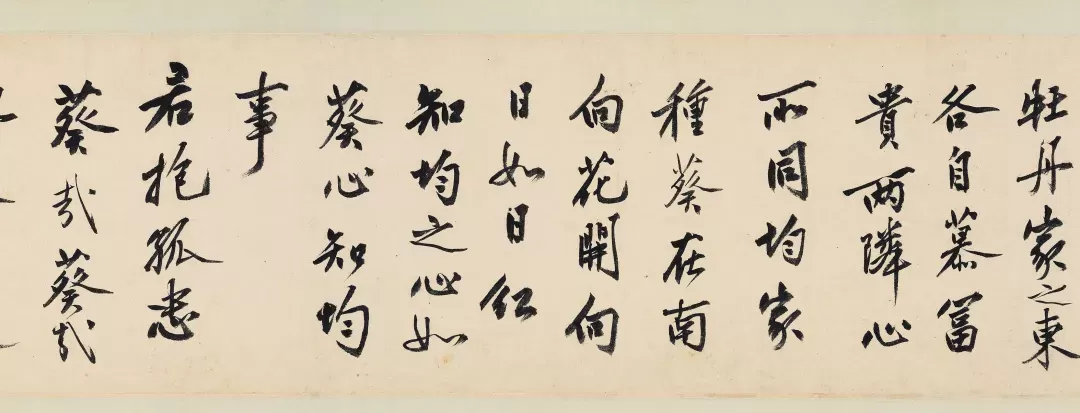 牡丹家之東
各自慕富
貴兩隣心
所同均家
種葵在南
向花開向
日如日紅
知均之心如
葵心知均
事
君抱孤忠
葵哉葵哉